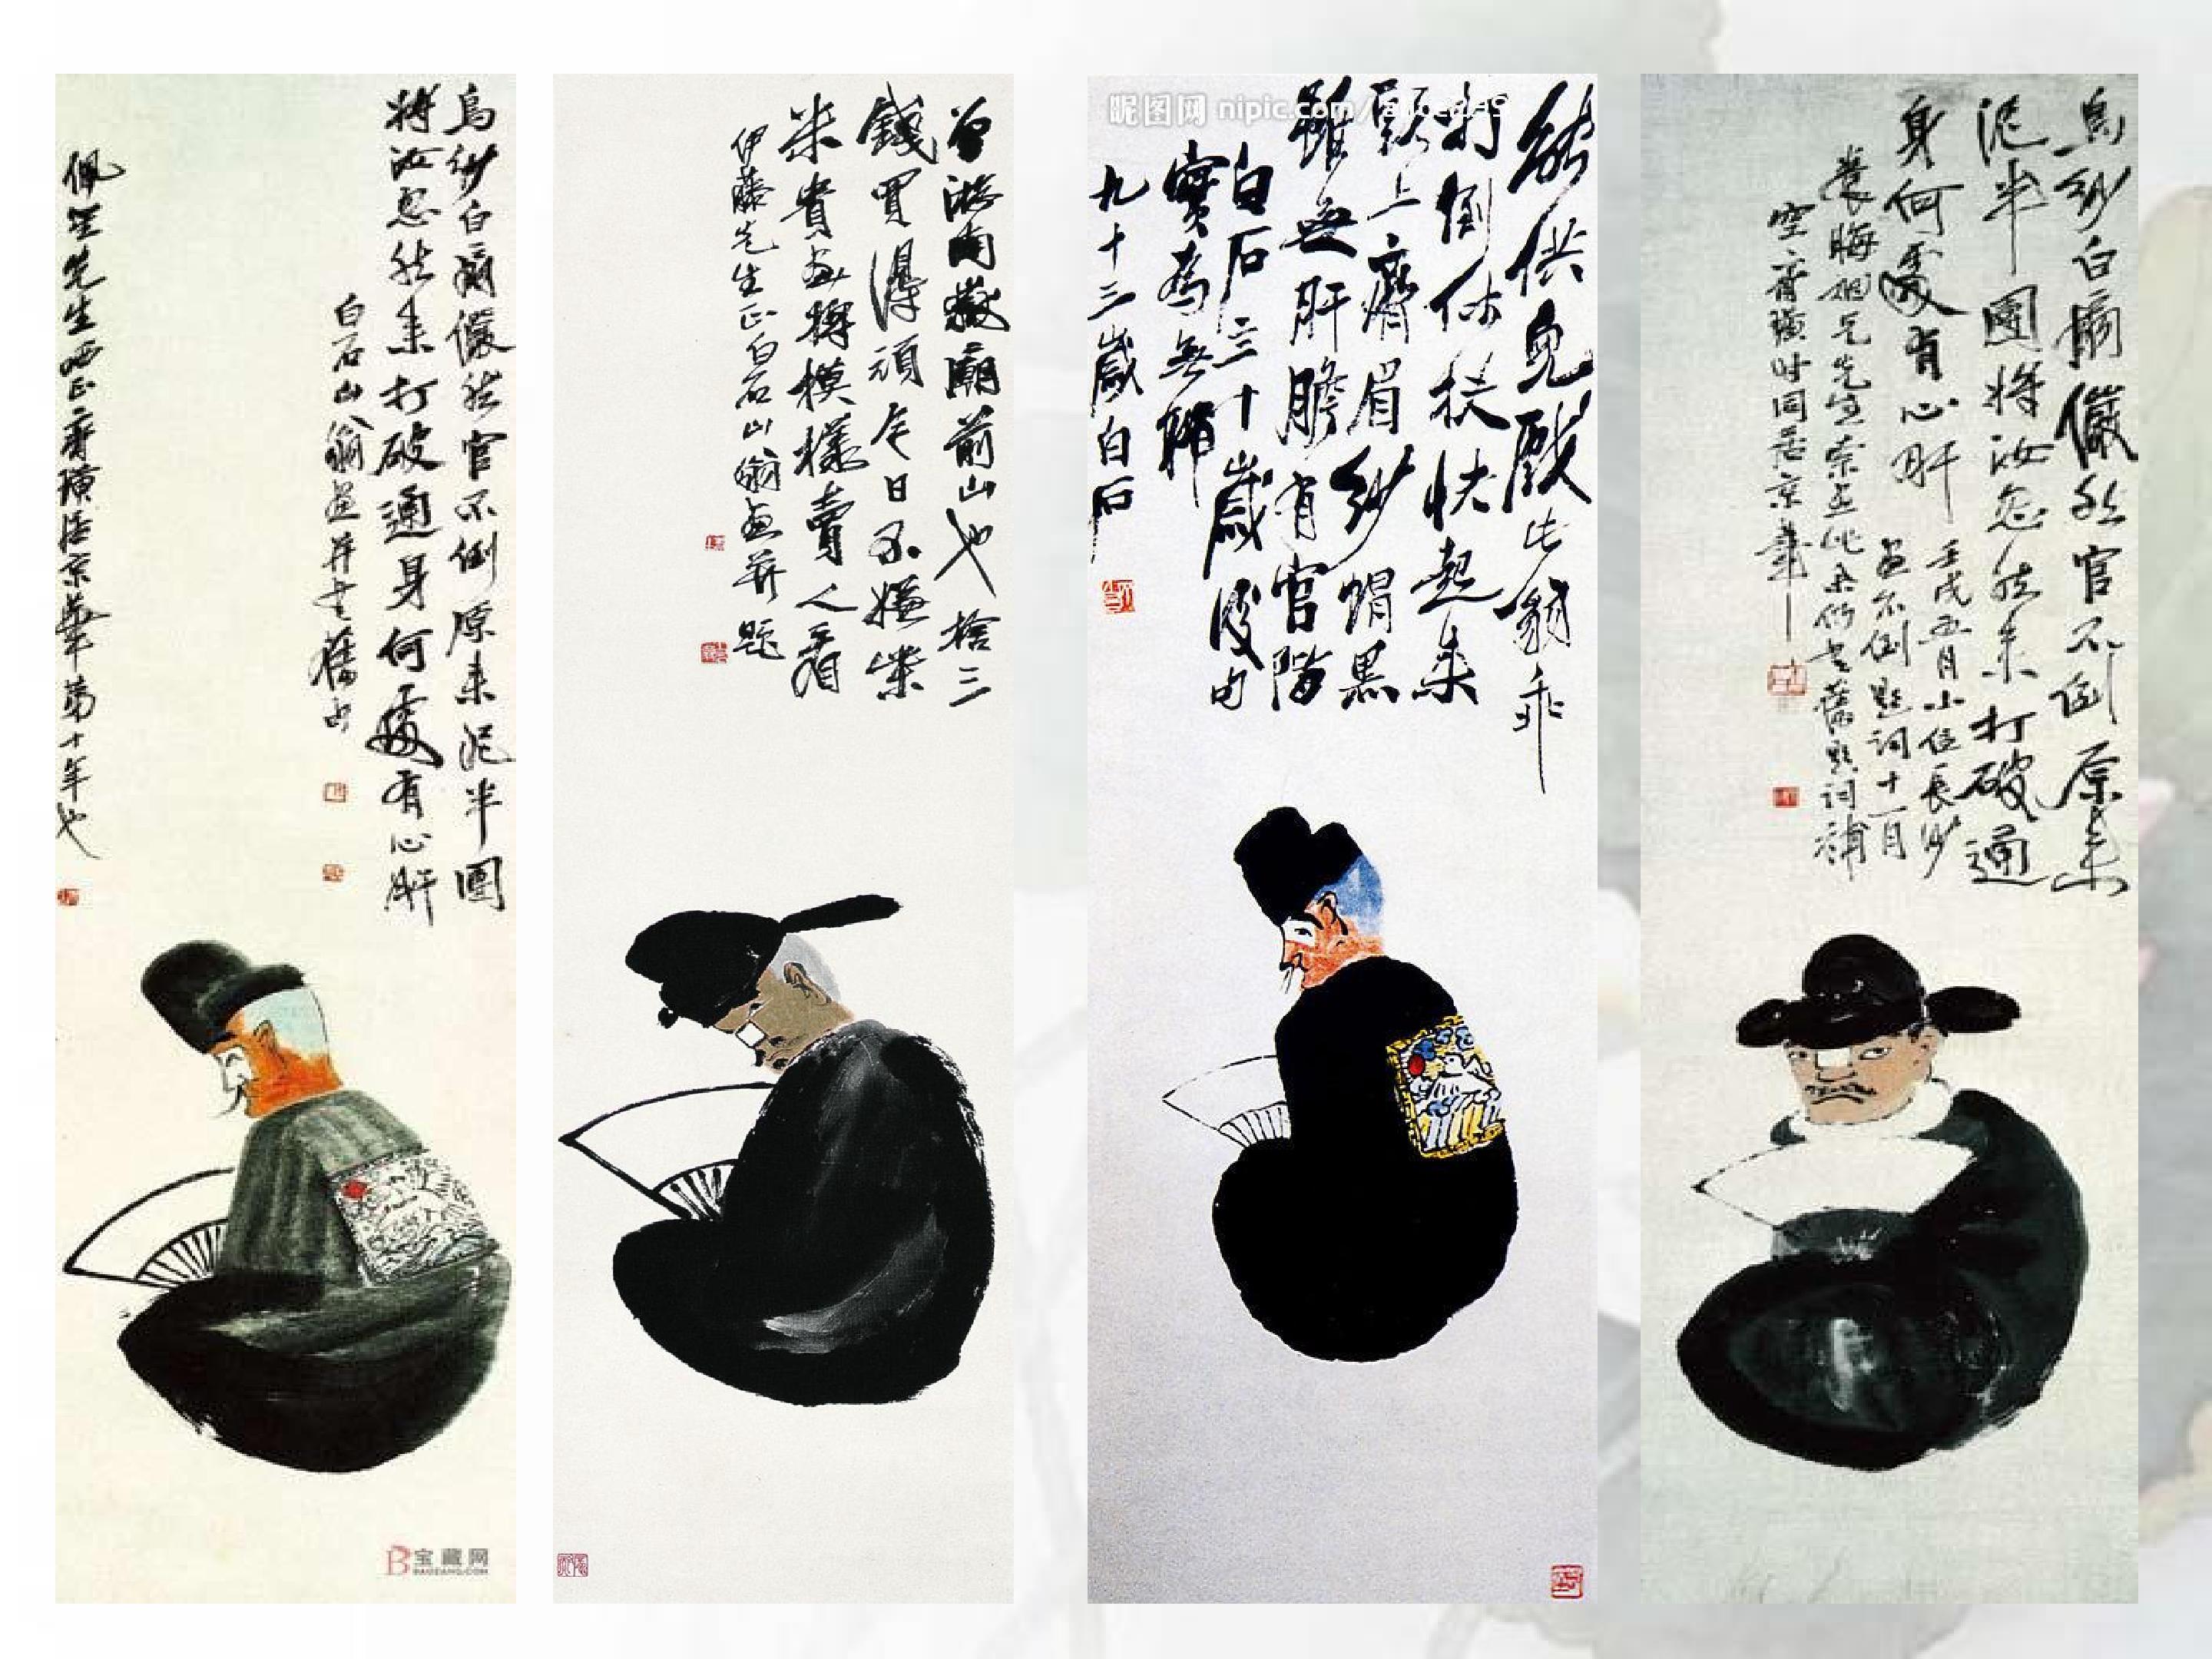 烏紗白扇儼然官不倒原来泥半團
將汝忽然来打破通身何處有心肝
白石山翁畫并書舊句
先生兩正齊璜居京華第十年也
曾游南嶽廟前山也捨三
錢買得頑
今日不嫌柴
米貴畫將模樣賣人看
伊藤先生正白石山翁畫并題
能供兒戲此翁乖
打倒休扶快起来
頭上齊眉紗帽黑
雖無肝膽有官階
白石三十歲後
實為無聊
九十三歲白石
昵图网 nipic.com/
烏紗白扇儼然官不倒原来
泥半團將汝忽然来打破通
身何處有心肝
壬戌五月小住長沙
畫不倒題詞十一月
先生索畫此余仍書舊題詞
空齊璜时同居京華
宝藏网
BAOZANG.COM